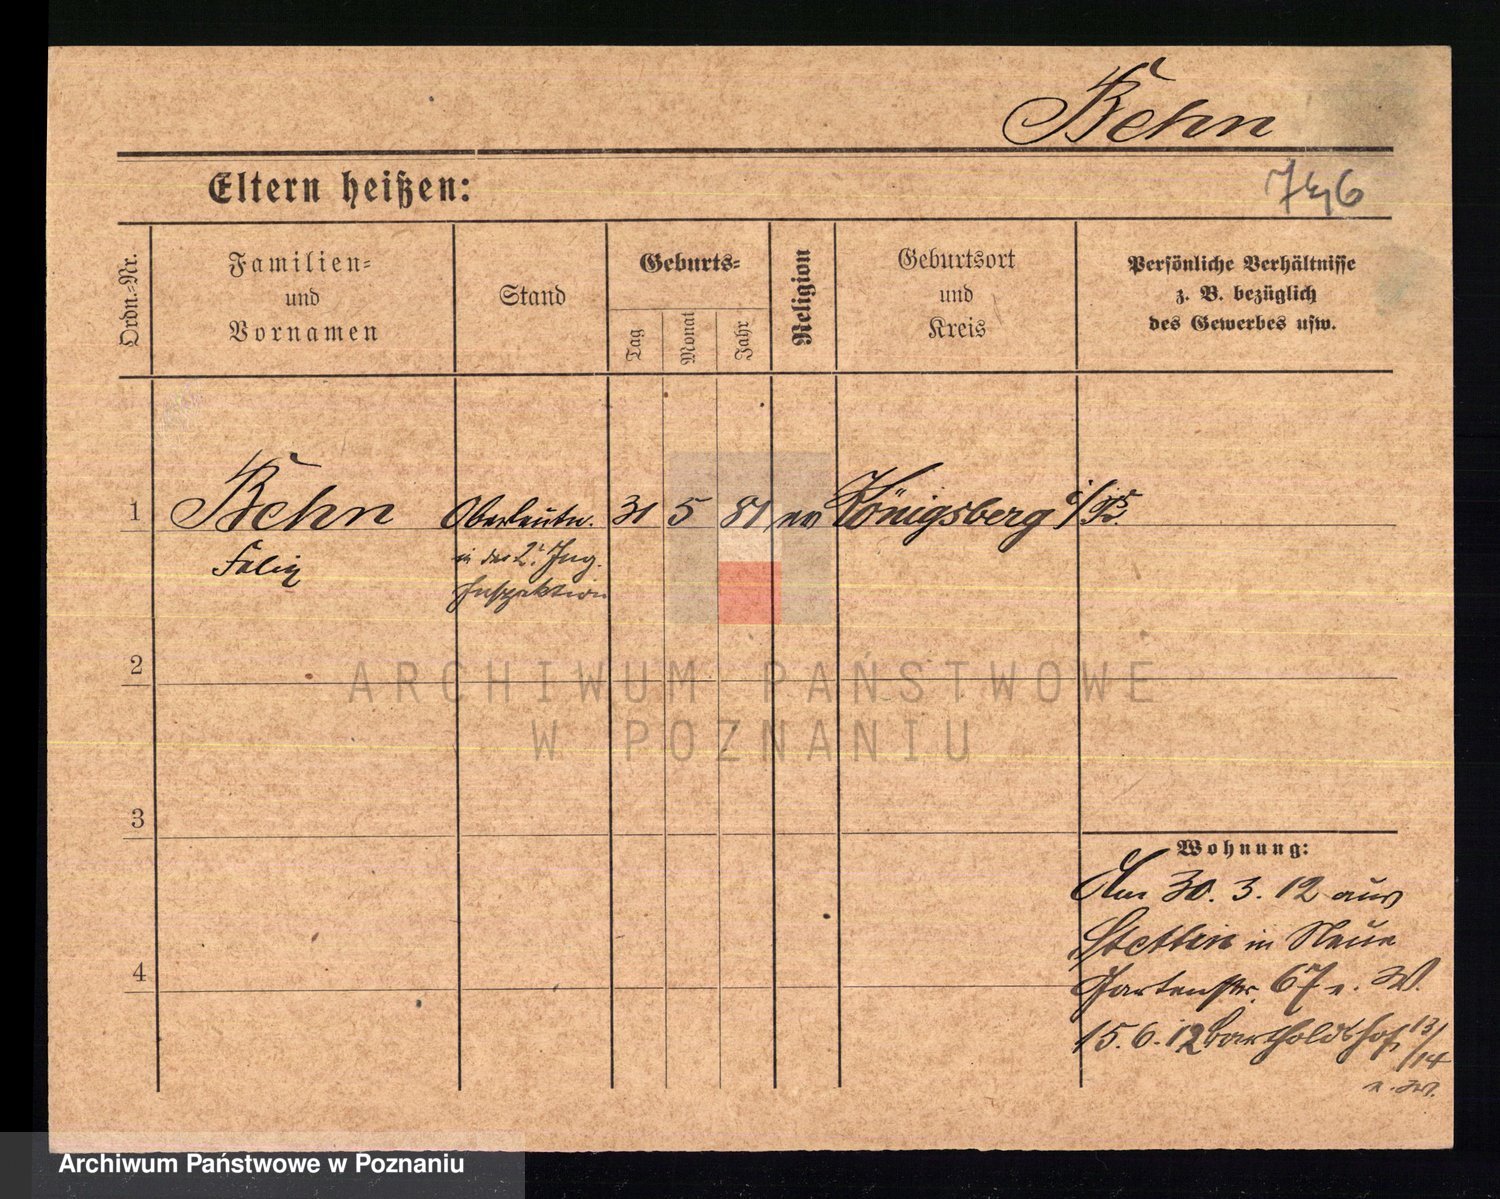 Behn
7446
Eltern heißen:
Ordn.-Nr.
Familien-
und
Vornamen
Stand
Geburts-
Tag
Monat
Jahr
Religion
Geburtsort
und
Kreis
Persönliche Verhältnisse
z. B. bezüglich
des Gewerbes usw.
1
Behn
Felix
Oberleutn.
in der 2. Ing.
Inspektion
31
5
81
ev
Königsberg i/Pr.
2
3
4
Wohnung:
Am 30. 3. 12 aus
Stettin in Neue
Gartenstr. 67 n. W.
15. 6. 12 Bartholdshof 13/14
n. W.
ARCHIWUM PAŃSTWOWE
W POZNANIU
Archiwum Państwowe w Poznaniu